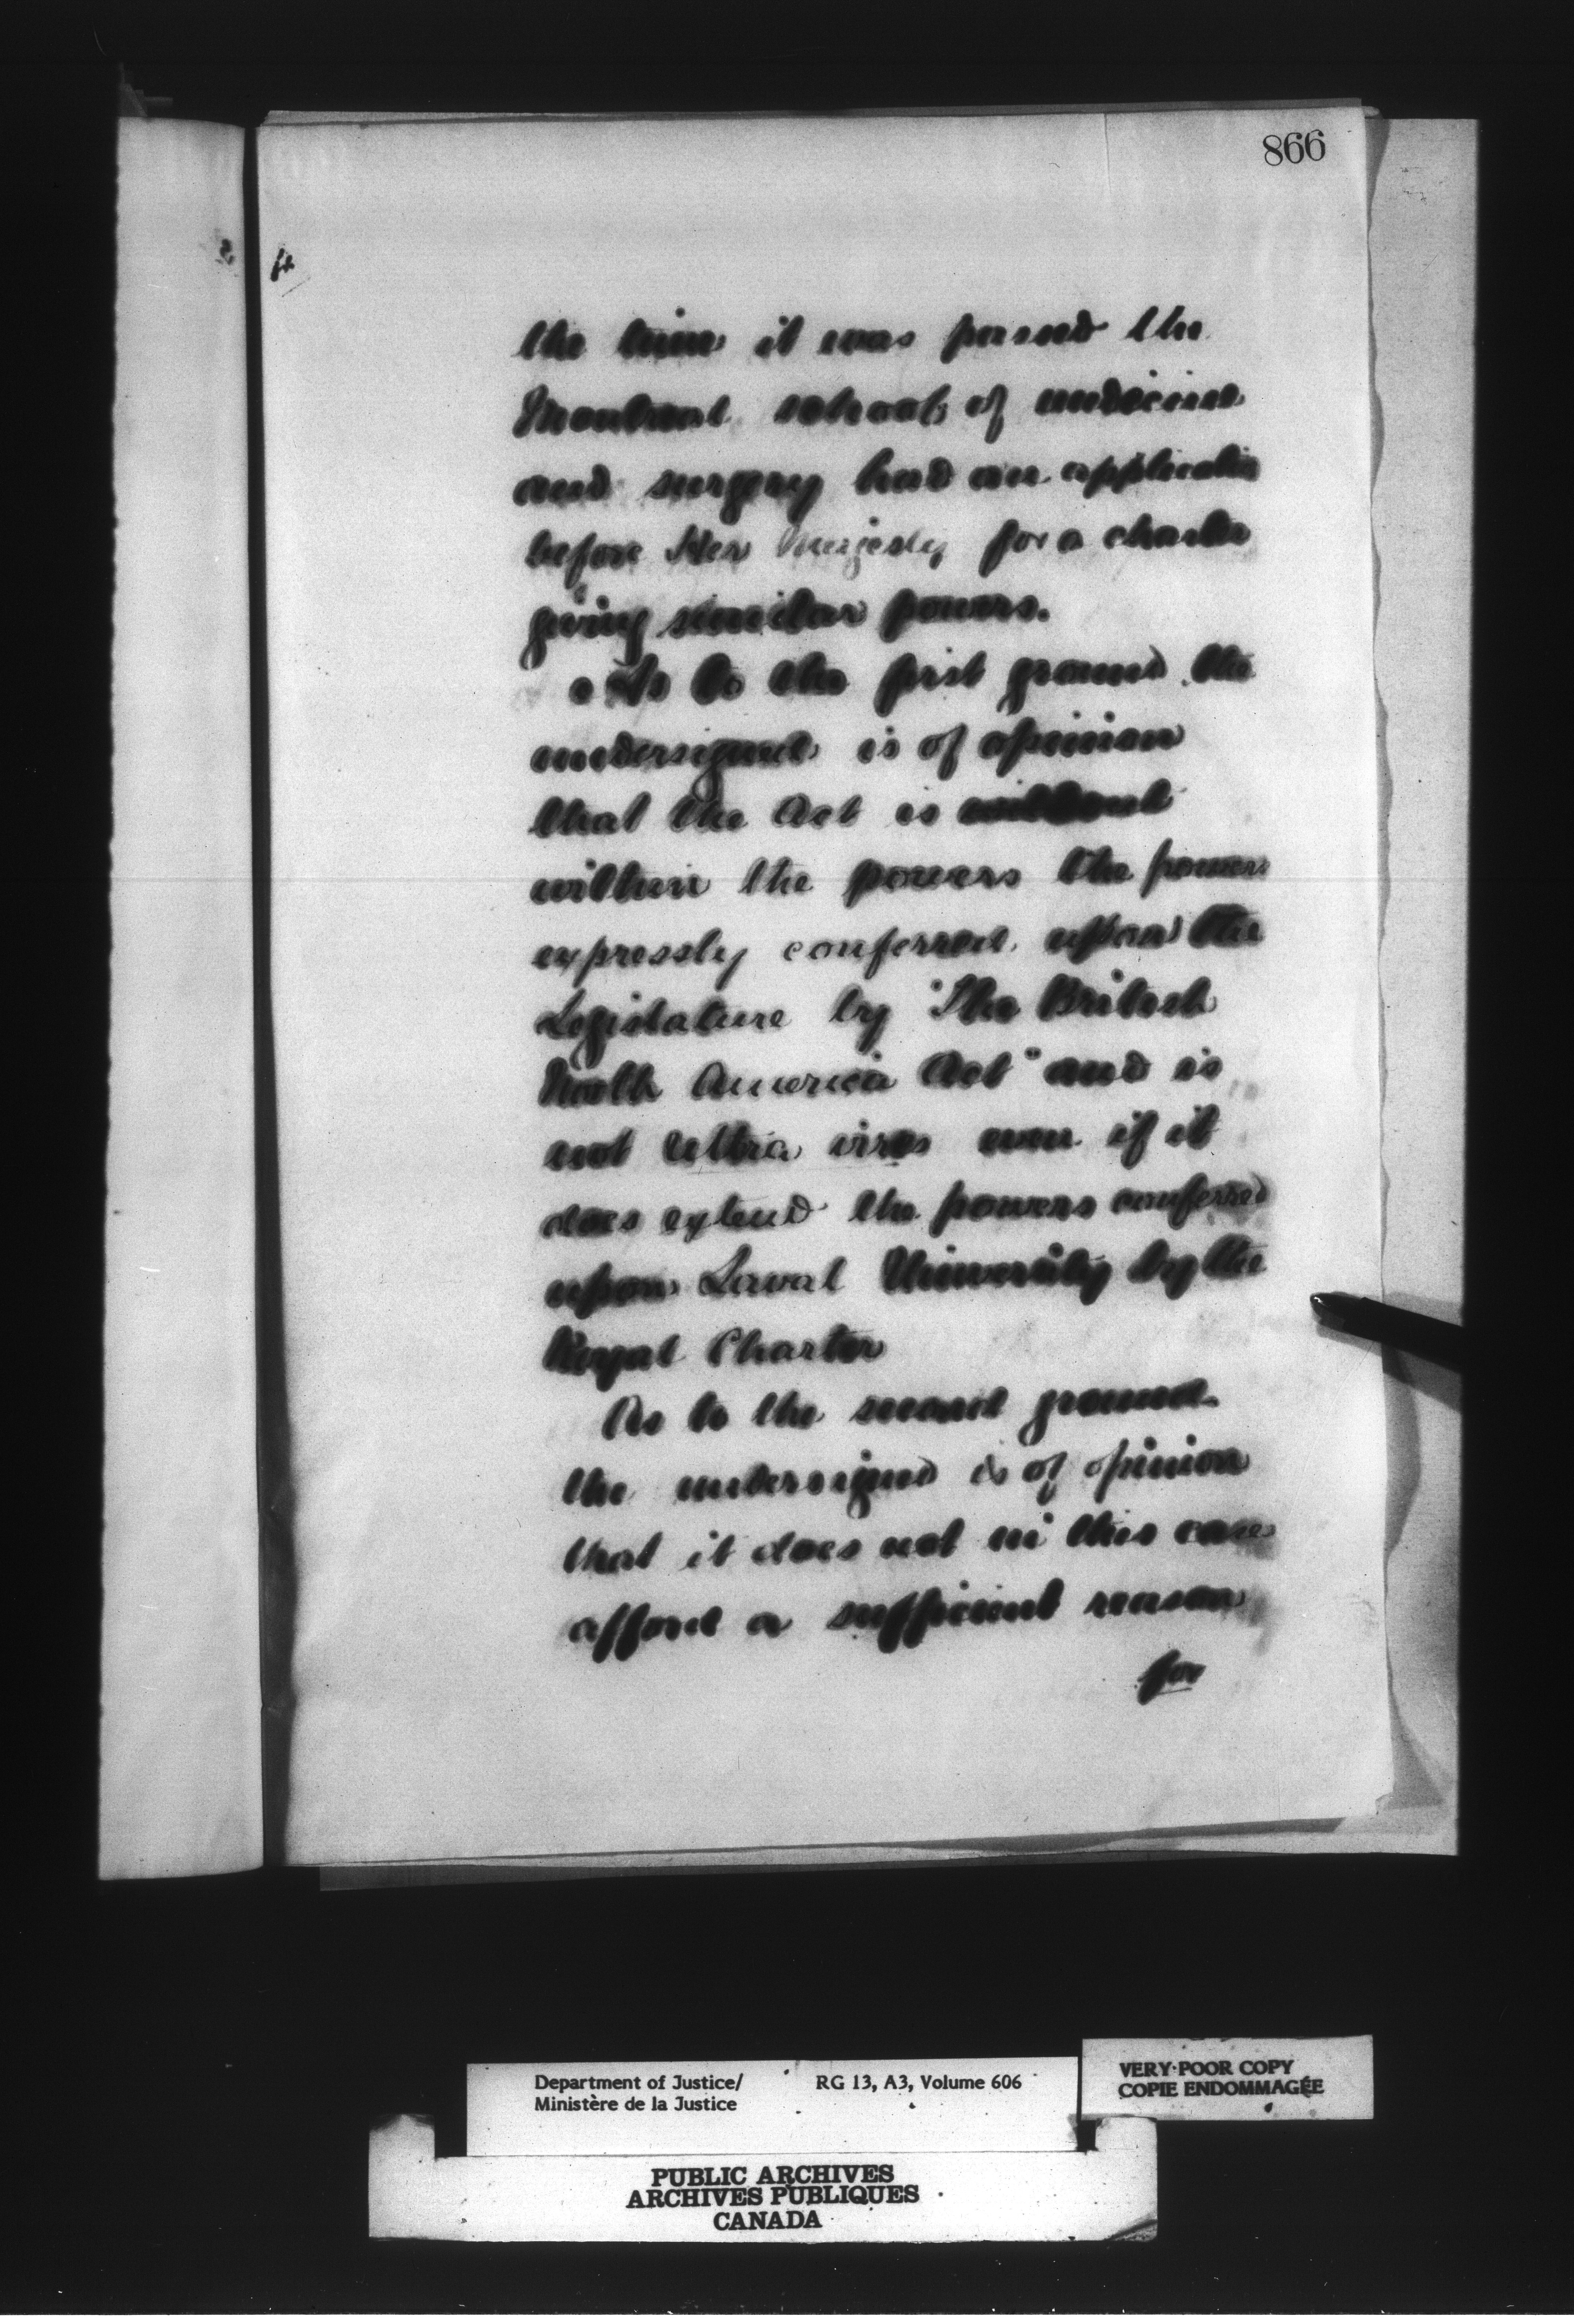 866
the time it was passed the
Montreal school of medicine
and surgery had an application
before Her Majesty for a charter
giving similar powers.
As to the first ground the
undersigned is of opinion
that the Act is
within the powers the powers
expressly conferred upon the
Legislature by "The British
North America Act" and is
not ultra vires even if it
does extend the powers conferred
upon Laval University by the
Royal Charter
As to the second ground
the undersigned is of opinion
that it does not in this case
afford a sufficient reason
for
Department of Justice/ RG 13, A3, Volume 606
Ministère de la Justice
VERY POOR COPY
COPIE ENDOMMAGÉE
PUBLIC ARCHIVES
ARCHIVES PUBLIQUES
CANADA